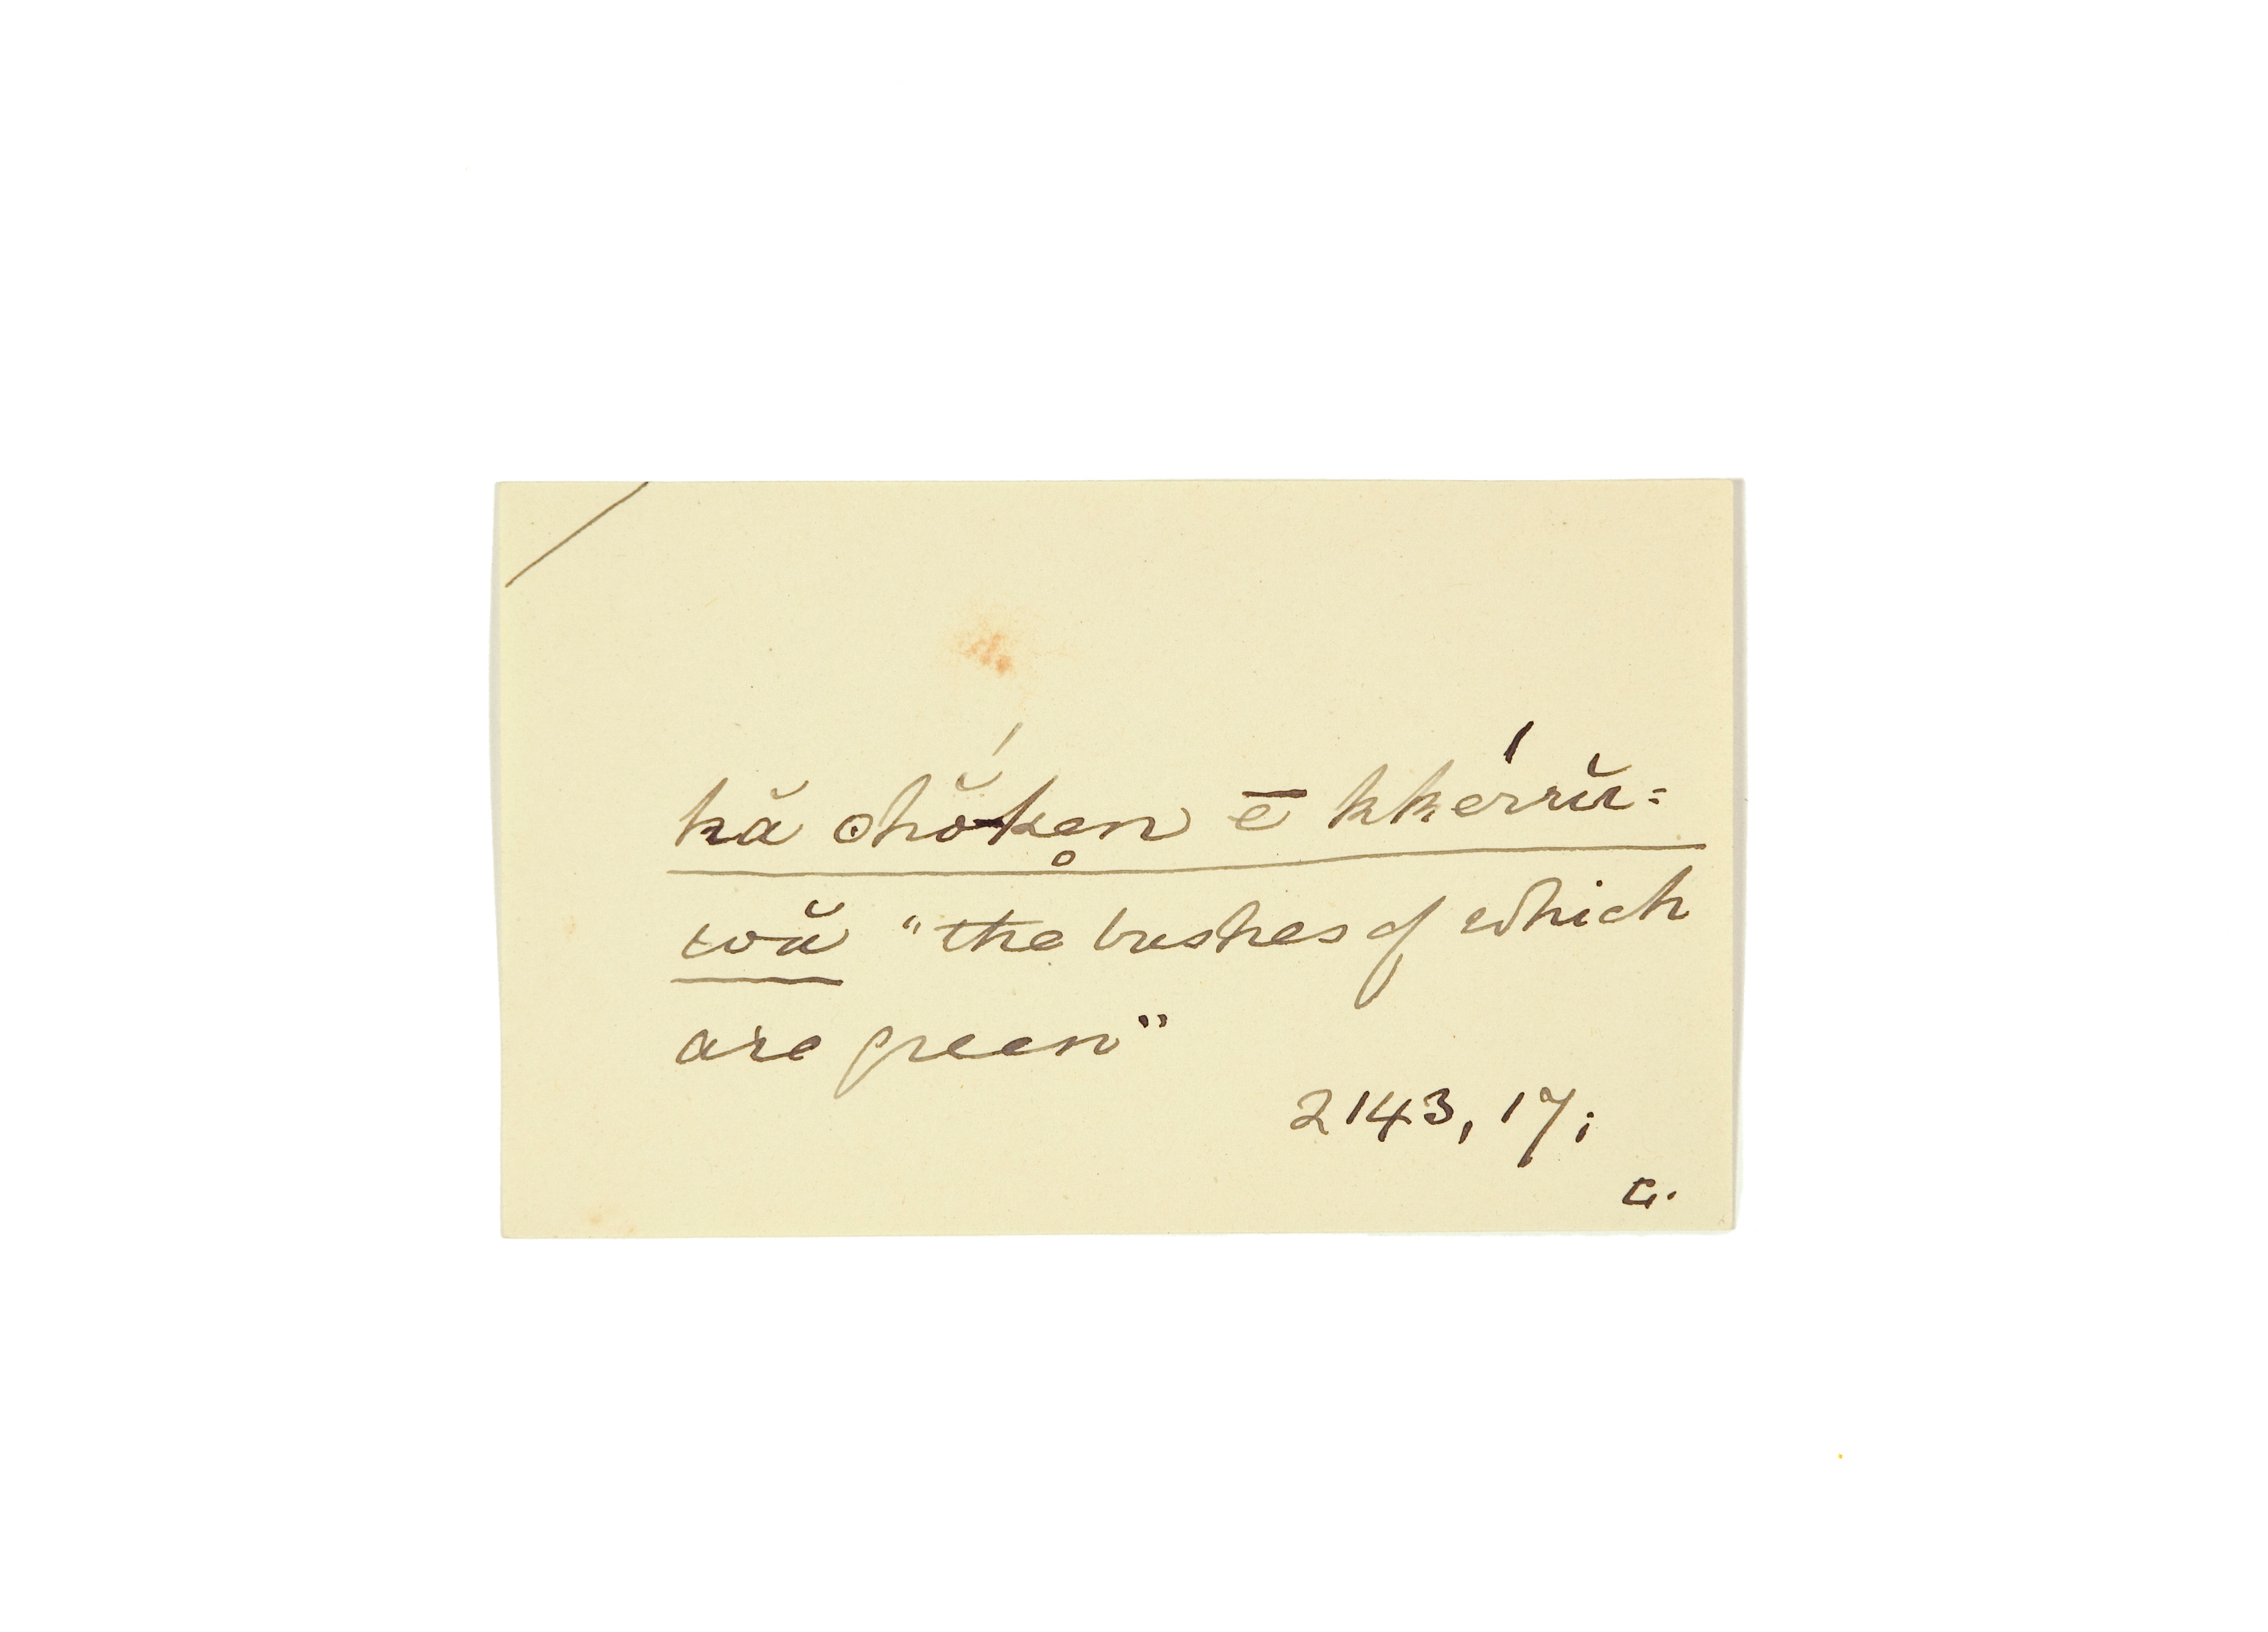 hă chŏ́ken̥ ē kkérrŭ=
wă "the bushes of which
are green"
2143, 17;
C.